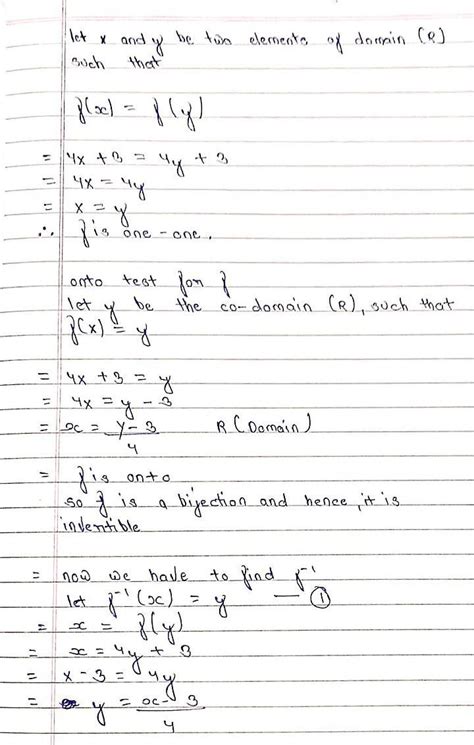 let x and y be two elements of domain (R)
such that
f(x) = f(y)
= 4x + 3 = 4y + 3
= 4x = 4y
= x = y
∴ f is one-one.
onto test for f
let y be the co-domain (R), such that
f(x) = y
= 4x + 3 = y
= 4x = y - 3
= x = y - 3 R (Domain)
4
= f is onto
so f is a bijection and hence, it is
invertible
= now we have to find f⁻¹
let f⁻¹(x) = y — ①
= x = f(y)
= x = 4y + 3
= x - 3 = 4y
= y = x - 3
4